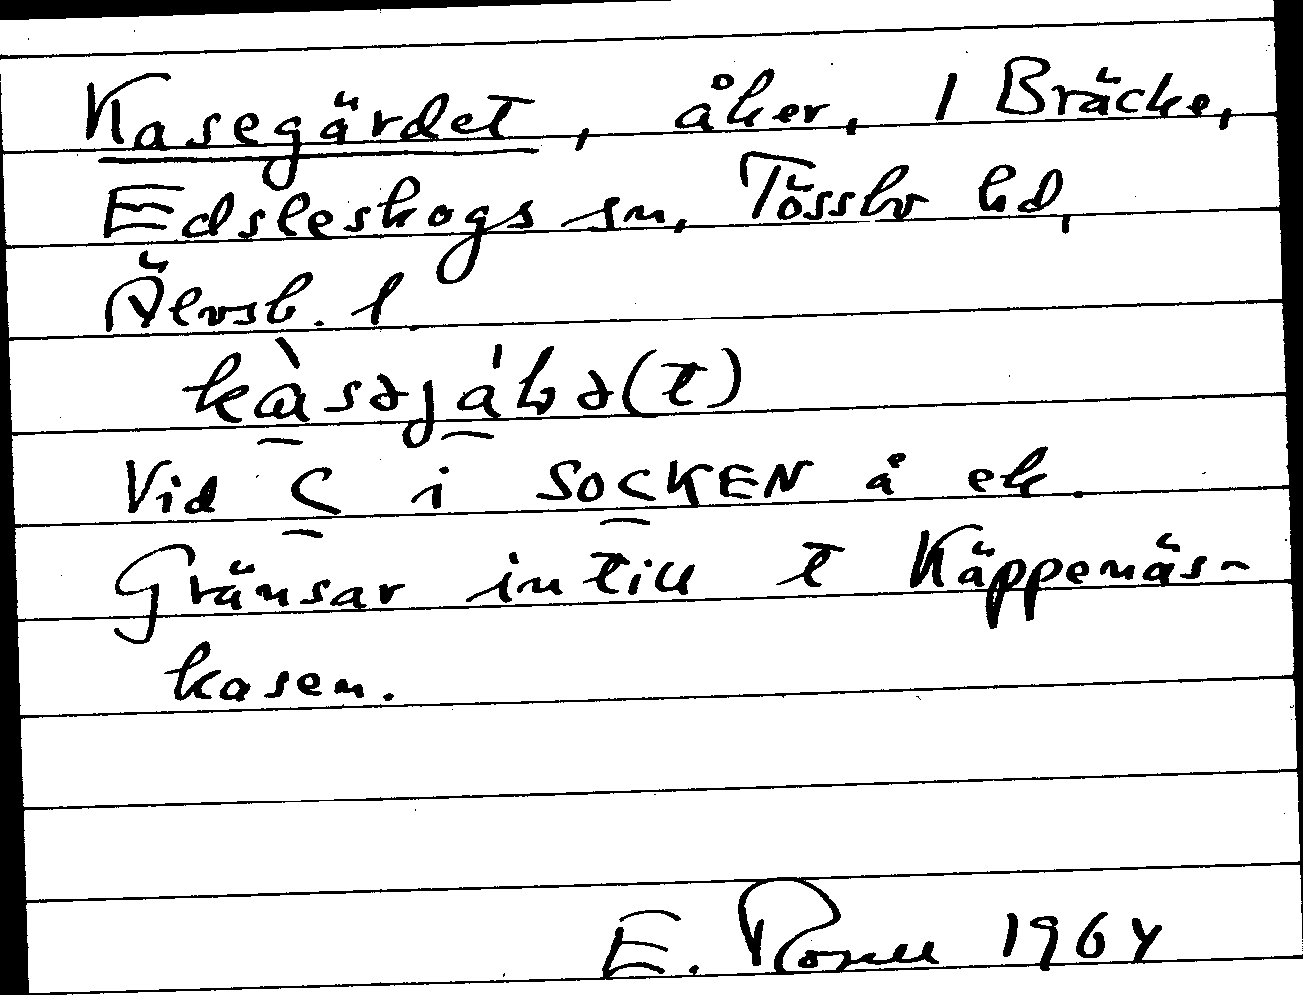 Kasegärdet, åker, 1 Bräcke,
Edsleskogs sn, Tössbo hd,
Älvsb. l
Vid C i SOCKEN å ek.
Gränsar intill t Käppenäs-
kasen.
E. 1964